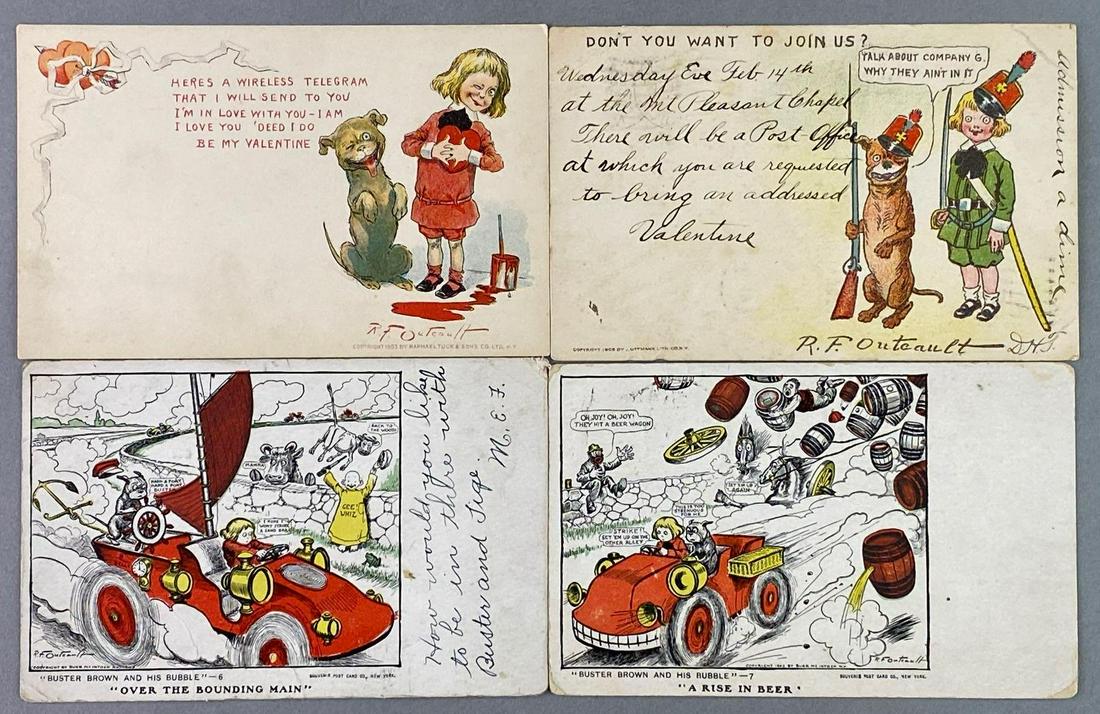 HERES A WIRELESS TELEGRAM
THAT I WILL SEND TO YOU
I'M IN LOVE WITH YOU-I AM
I LOVE YOU 'DEED I DO
BE MY VALENTINE
R.F. Outcault
COPYRIGHT 1903 BY RAPHAEL TUCK & SONS CO. LTD. N.Y.
DON'T YOU WANT TO JOIN US?
TALK ABOUT COMPANY G.
WHY THEY AIN'T IN IT
Wednesday Eve Feb 14th
at the Mt Pleasant Chapel
There will be a Post Office
at which you are requested
to bring an addressed
Valentine
admission a dime
R.F. Outcault
MAMMA!
BACK TO
THE WOODS
GEE
WHIZ
R.F. Outcault
"BUSTER BROWN AND HIS BUBBLE"—6
SOUVENIR POST CARD CO., NEW YORK.
"OVER THE BOUNDING MAIN"
How would you like
to be in there with
Buster and Tige
M. E. F.
OH, JOY! OH, JOY!
THEY HIT A BEER WAGON
SET 'EM UP
AGAIN
STRIKE!!
SET 'EM UP ON THE
OTHER ALLEY
R.F. Outcault
"BUSTER BROWN AND HIS BUBBLE"—7
SOUVENIR POST CARD CO., NEW YORK.
"A RISE IN BEER"